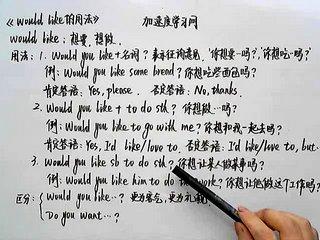 《would like的用法》 加速度学习网
would like：想要，想做．
用法：1. Would you like+名词？表示征询意见，"你想要…吗？"，"你想吃…吗？"
例：Would you like some bread？你想吃些面包吗？
肯定答语：Yes, please. 否定答语：No, thanks.
2. Would you like + to do sth？你想做…吗？
例：Would you like to go with me？你想和我一起去吗？
肯定答语：Yes, I'd like/love to. 否定答语：I'd like/love to, but…
3. Would you like sb to do sth？你想让某人做某事吗？
例：Would you like him to do work？你想让他做这个工作吗？
区分：{Would you like…？更为客气，更为礼貌
Do you want…？